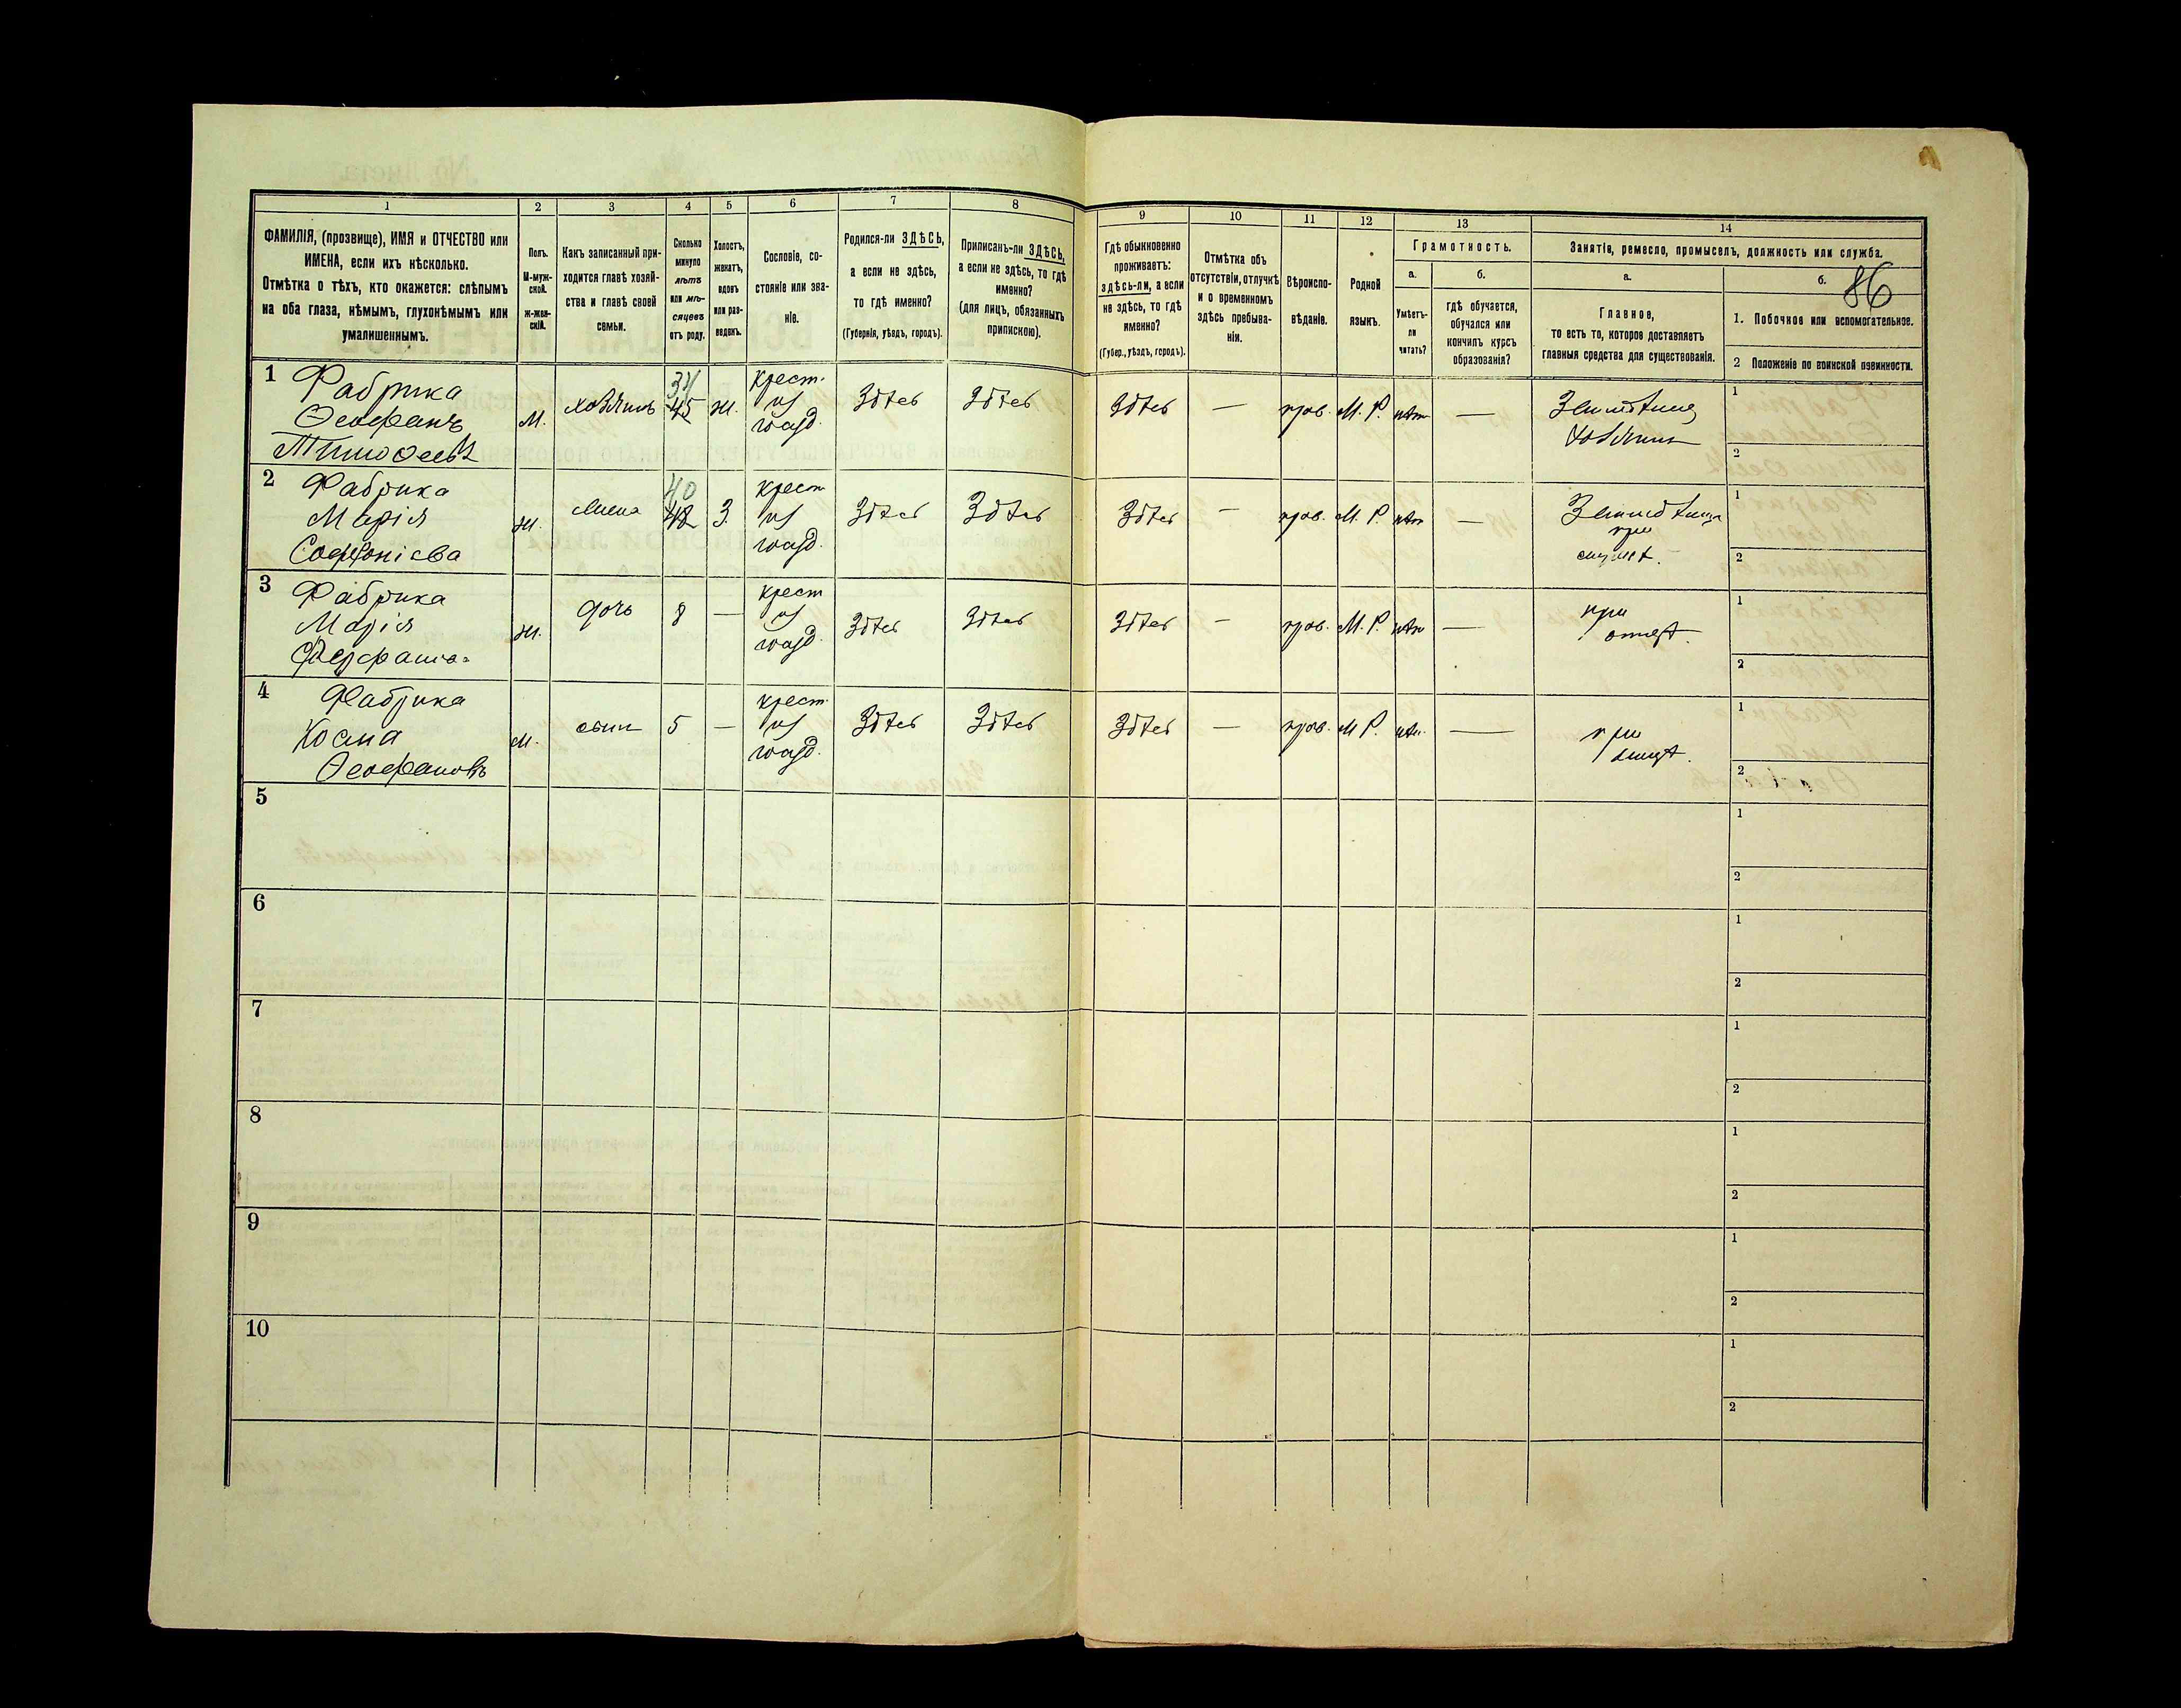 1
2
3
4
5
6
7
8
9
10
11
12
13
14
ФАМИЛІЯ, (прозвище), ИМЯ и ОТЧЕСТВО или
ИМЕНА, если ихъ нѣсколько.
Отмѣтка о тѣхъ, кто окажется: слѣпымъ
на оба глаза, нѣмымъ, глухонѣмымъ или
умалишеннымъ.
Полъ.
М-муж-
ской.
ж-жен-
скій.
Какъ записанный при-
ходится главѣ хозяй-
ства и главѣ своей
семьи.
Сколько
минуло
лѣтъ
или мѣ-
сяцевъ
отъ роду.
Холостъ,
женатъ,
вдовъ
или раз-
веденъ.
Сословіе, со-
стояніе или зва-
ніе.
Родился-ли ЗДѢСЬ,
а если не здѣсь,
то гдѣ именно?
(Губернія, уѣздъ, городъ).
Приписанъ-ли ЗДѢСЬ,
а если не здѣсь, то гдѣ
именно?
(для лицъ, обязанныхъ
припискою).
Гдѣ обыкновенно
проживаетъ:
здѣсь-ли, а если
не здѣсь, то гдѣ
именно?
(Губер., уѣздъ, городъ).
Отмѣтка объ
отсутствіи, отлучкѣ
и о временномъ
здѣсь пребыва-
ніи.
Вѣроиспо-
вѣданіе.
Родной
языкъ.
Грамотность.
а.
Умѣетъ-
ли
читать?
б.
гдѣ обучается,
обучался или
кончилъ курсъ
образованія?
Занятіе, ремесло, промыселъ, должность или служба.
а.
Главное,
то есть то, которое доставляетъ
главныя средства для существованія.
б.
86
1. Побочное или вспомогательное.
2 Положеніе по воинской повинности.
1 Фабрика
Ѳеофанъ
Тимоѳеевъ
М.
хозяинъ
45
Ж.
крест.
из
Здѣсь
Здѣсь
Здѣсь
—
прав.
М. Р.
нѣт
—
Земледѣлец
хозяин
1
2
2 Фабрика
Марія
Софроніева
Ж.
жена
40
48
З.
крест
из
Здѣсь
Здѣсь
Здѣсь
—
прав.
М. Р.
нѣт
—
при
мужѣ.
1
2
3 Фабрика
Марія
Ж.
дочь
8
—
крест
из
Здѣсь
Здѣсь
Здѣсь
—
прав.
М. Р.
нѣт
—
при
отцѣ.
1
2
4 Фабрика
Косма
Ѳеофановъ
М.
сынъ
5
—
крест.
из
Здѣсь
Здѣсь
Здѣсь
—
прав.
М Р.
нѣт.
—
при
отцѣ.
1
2
5
1
2
6
1
2
7
1
2
8
1
2
9
1
2
10
1
2